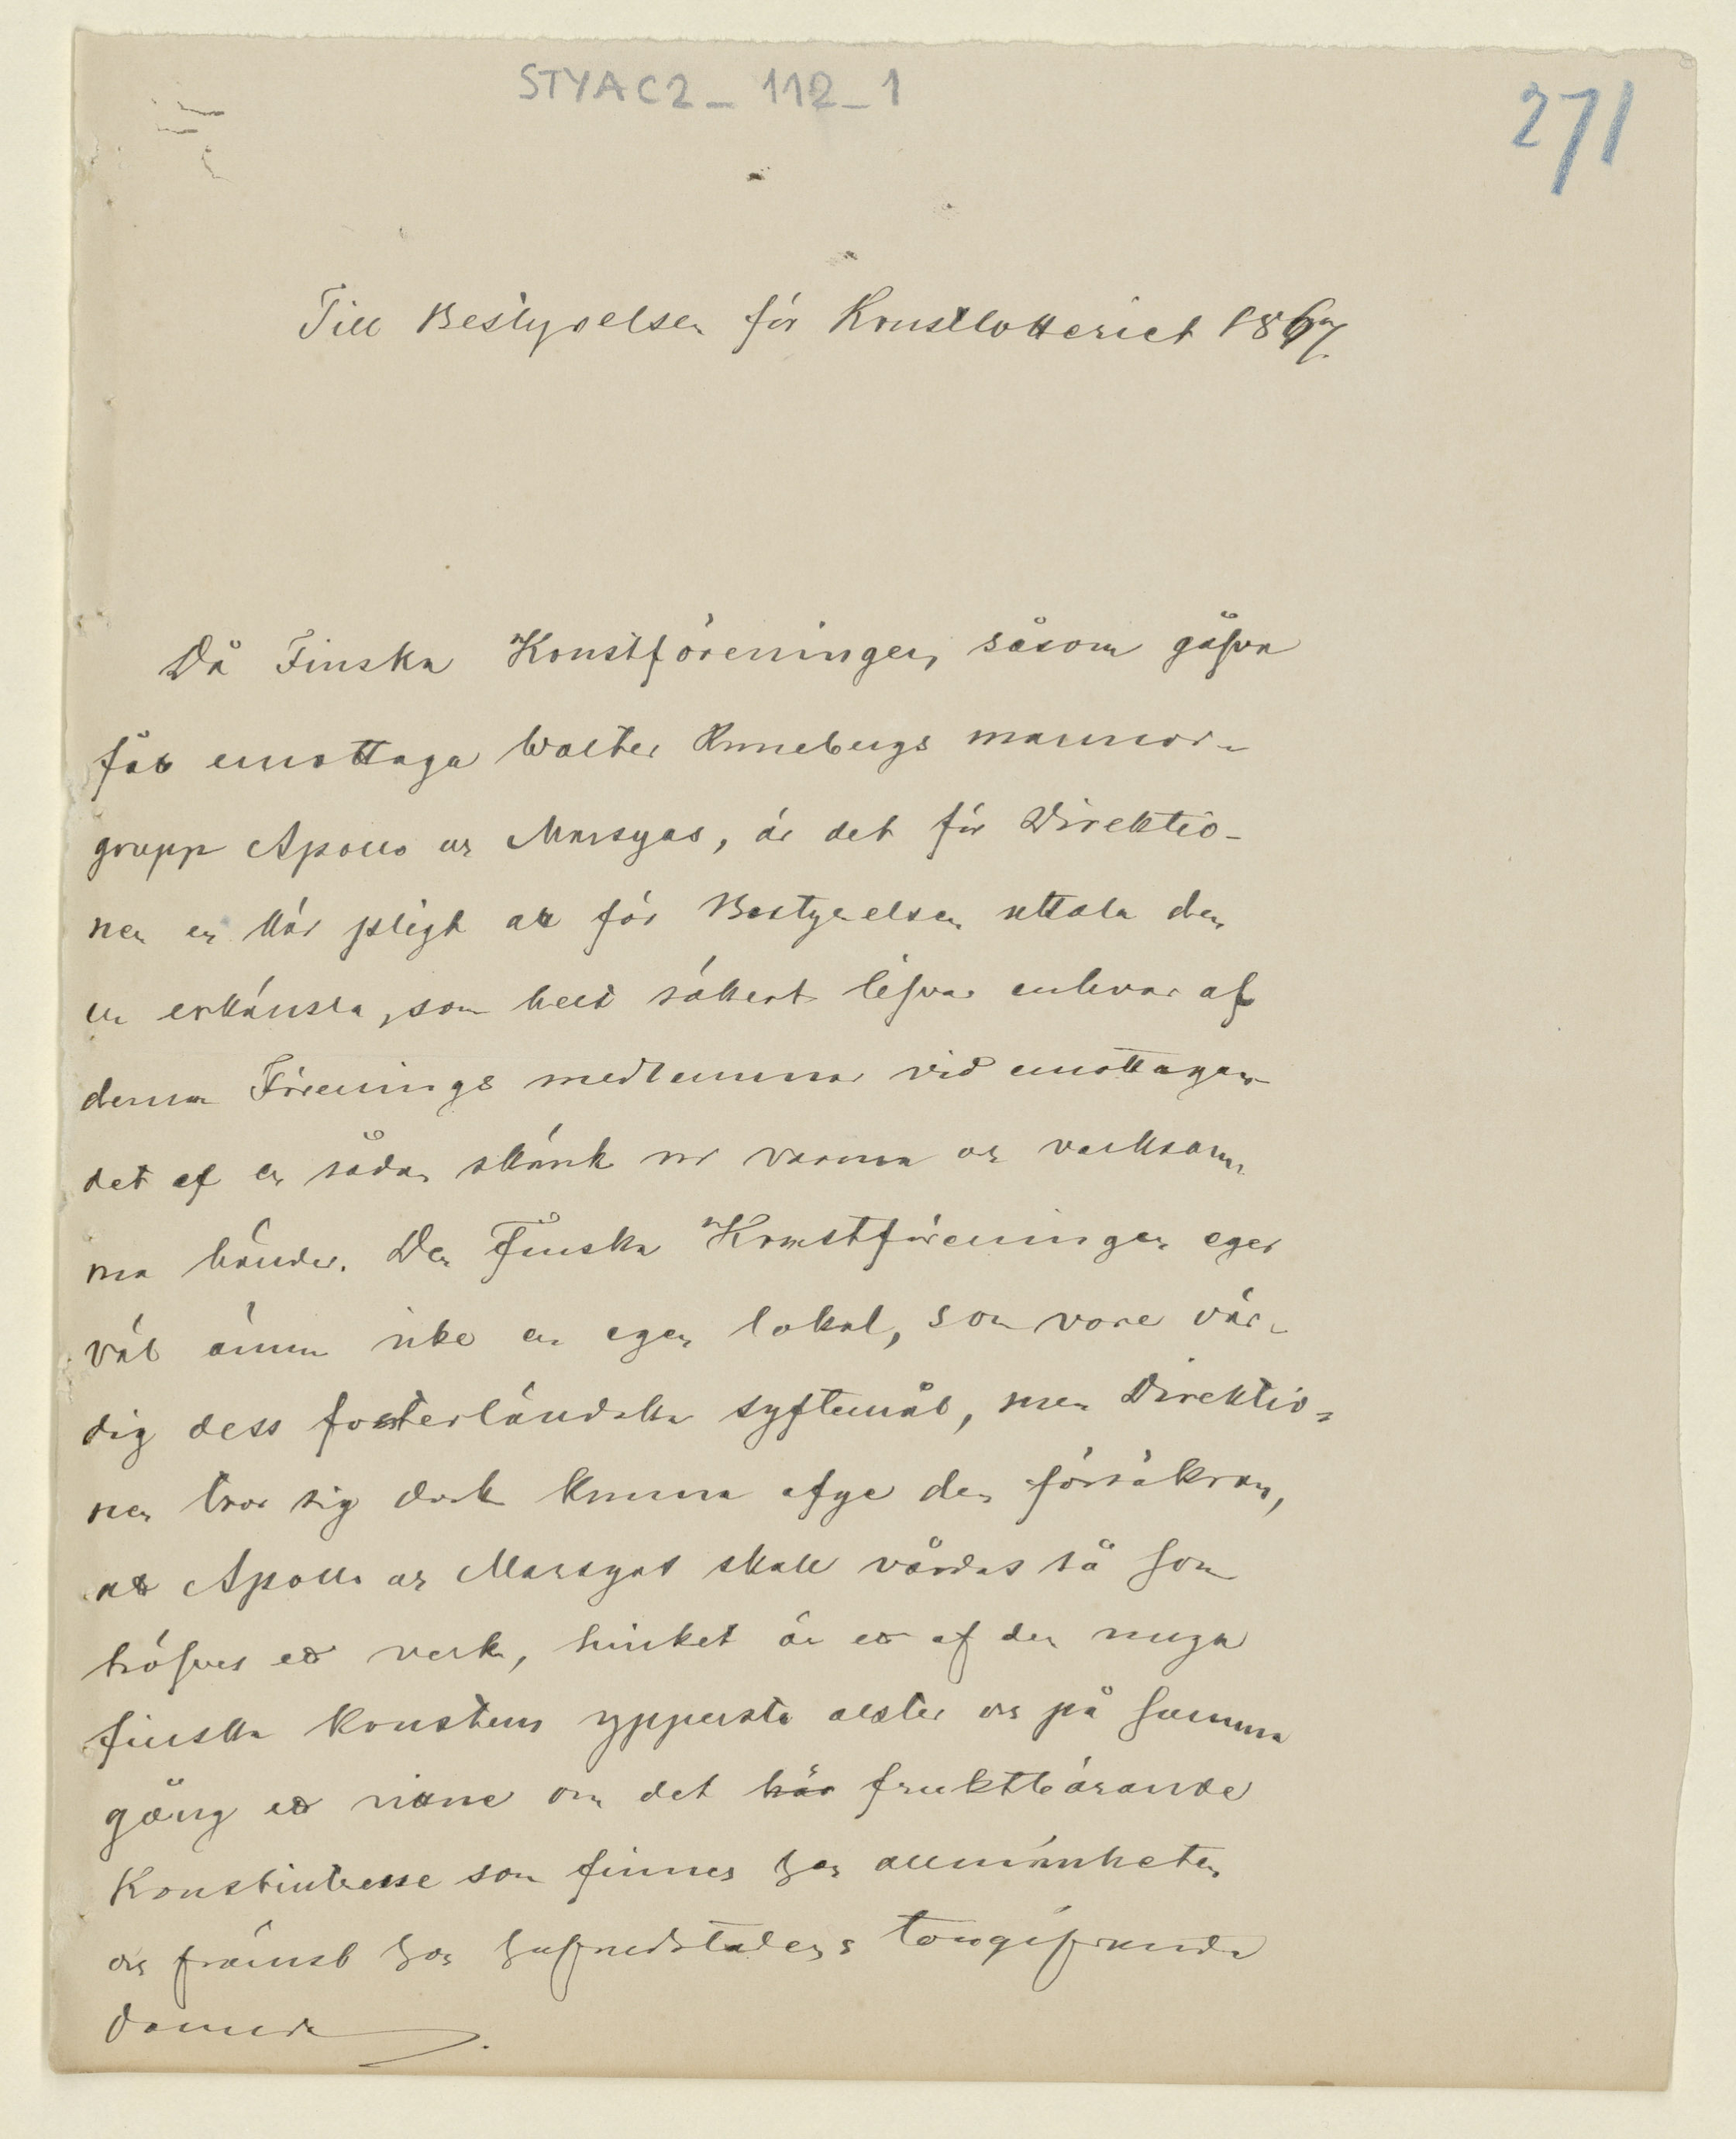 STYAC2_112_1
271
Till Bestyrelsen för Konstlotteriet 1867.
Då Finska Konstföreningen såsom gåfva
får emottaga Walter Runebergs marmor-
grupp Apollo och Marsyas, är det för Direktio-
nen en kär pligt att för Bestyrelsen uttala den
erkänsla, som helt säkert lifvar enhvar af
denna Förenings medlemmar vid emottagan-
det af en sådan skänk ur varma och verksam-
ma händer. Den Finska Konstföreningen eger
väl ännu icke en egen lokal, som vore vär-
dig dess fosterländska syftemål, men Direktio-
nen tror sig dock kunna afge den försäkran,
att Apollo och Marsyas skall vårdas så som
höfves ett verk, hvilket är ett af den unga
finska konstens ypperste alster och på samma
gång ett vittne om det här fruktbärande
Konstintresse som finnes hos allmänheten
och främst hos hufvudstadens tongifvande
damer.